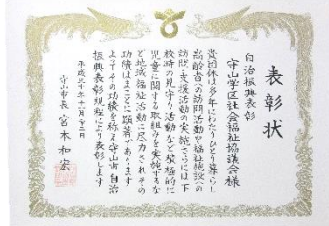 表彰状
自治振興表彰
守山学区社会福祉協議会様
貴団体は多年にわたりひとり暮らし
高齢者への訪問活動や福祉施設への
訪問・支援活動の実施さらには下
校時の見守り活動など積極的に
児童に関する取組みを実施するな
ど地域福祉活動に尽力されその
功績はまことに顕著であります
よってその功績を称え守山市自治
振興表彰規程により表彰します
平成三十年十一月二日
守山市長 宮本和宏